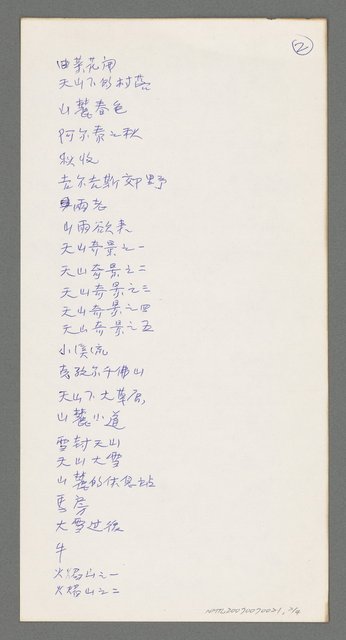 ②
油菜花開
天山下的村落
山麓春色
阿尔泰之秋
秋收
吉尔吉斯郊野
兩老
山雨欲来
天山奇景之一
天山奇景之二
天山奇景之三
天山奇景之四
天山奇景之五
小溪流
千佛山
天山下大草原
山麓小道
雪封天山
天山大雪
山麓的休息站
馬房
大雪过後
牛
火焰山之一
火焰山之二
NMTL20090090021, 2/4